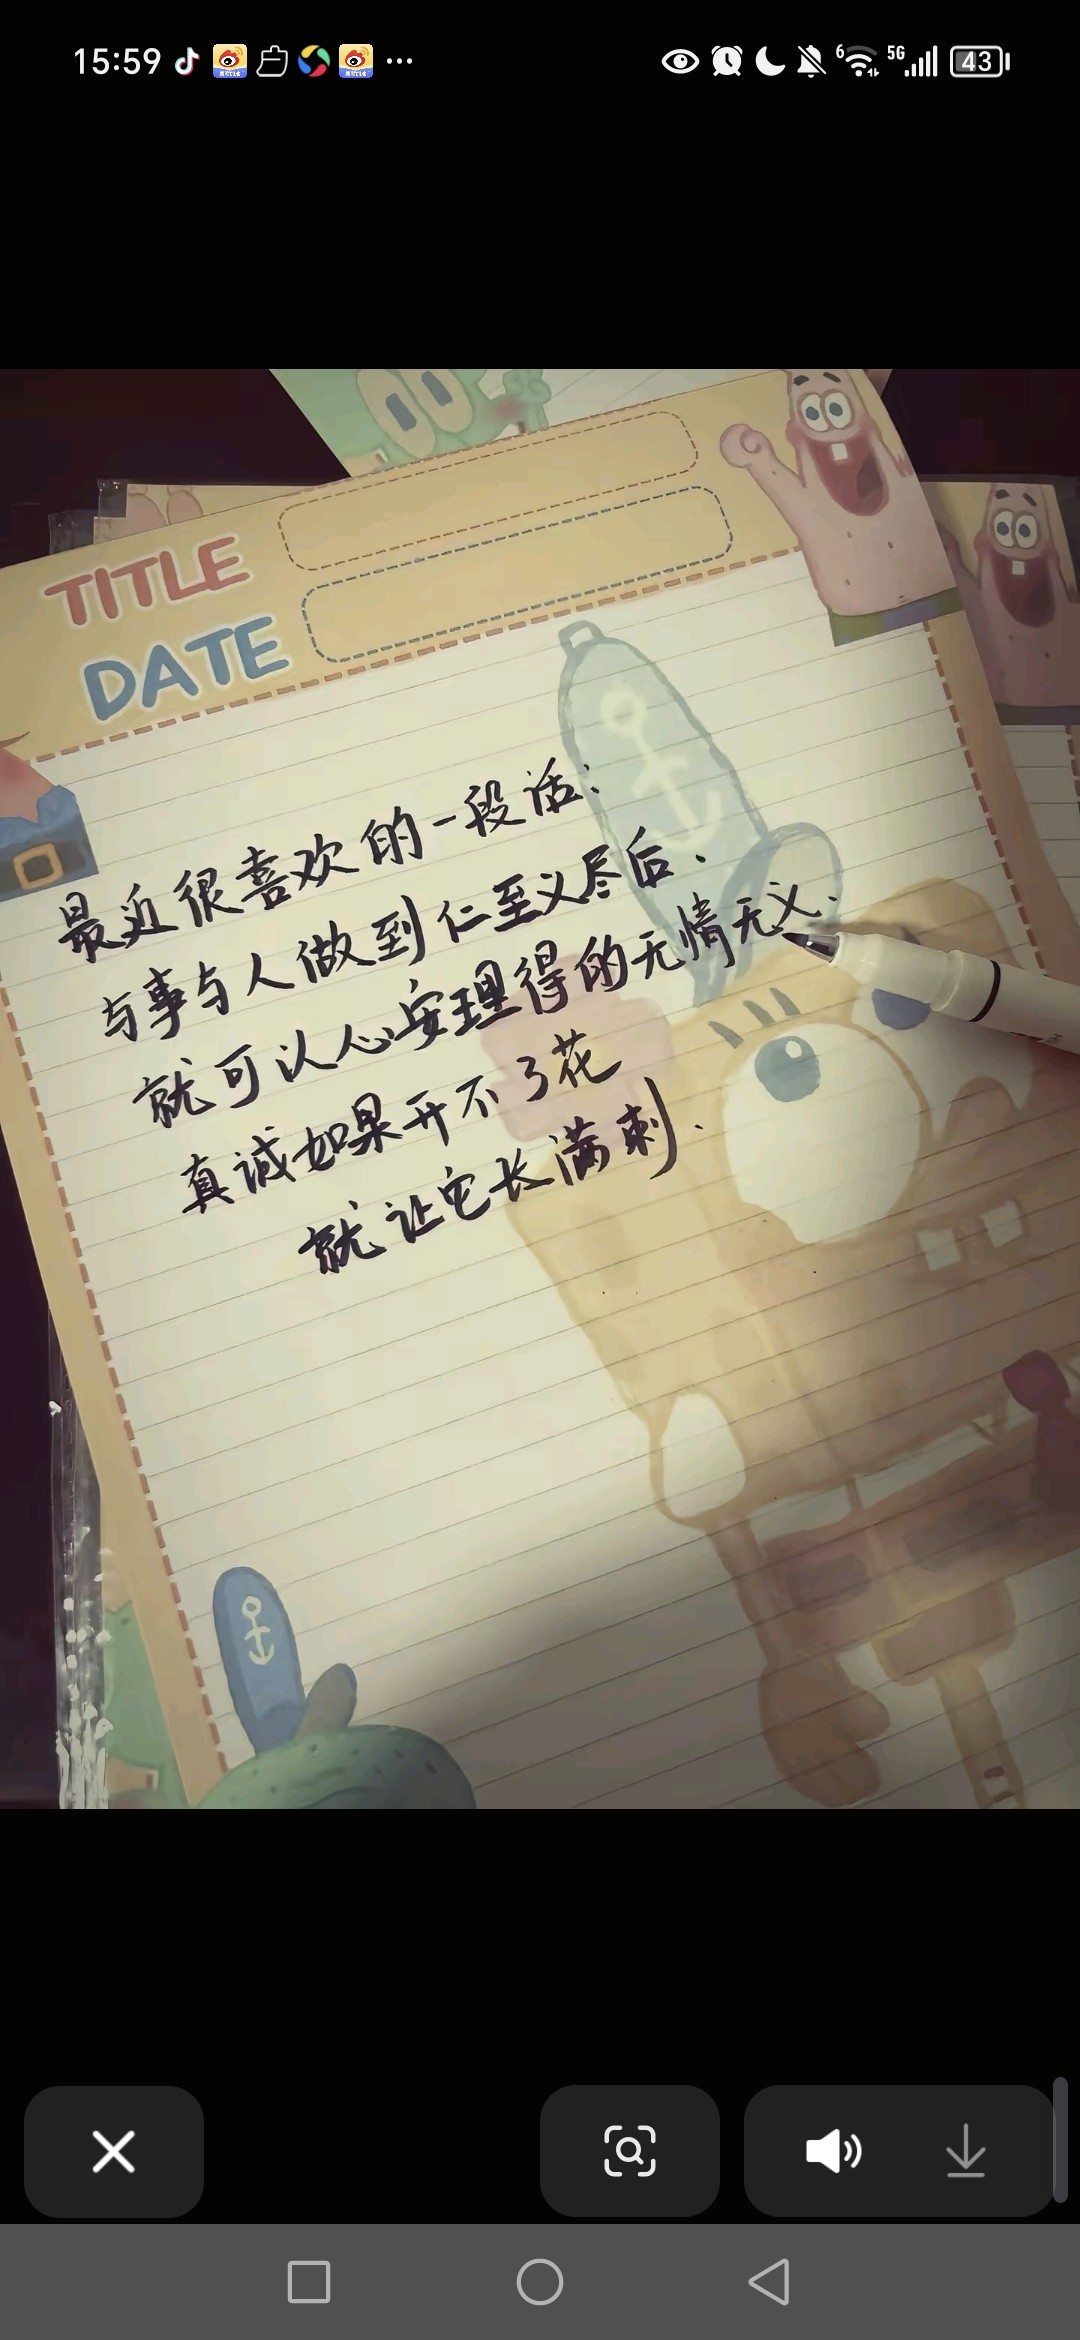 15:59
6
5G
43
TITLE
DATE
最近很喜欢的一段话:
与事与人做到仁至义尽后.
就可以心安理得的无情无义.
真诚如果开不了花
就让它长满刺.